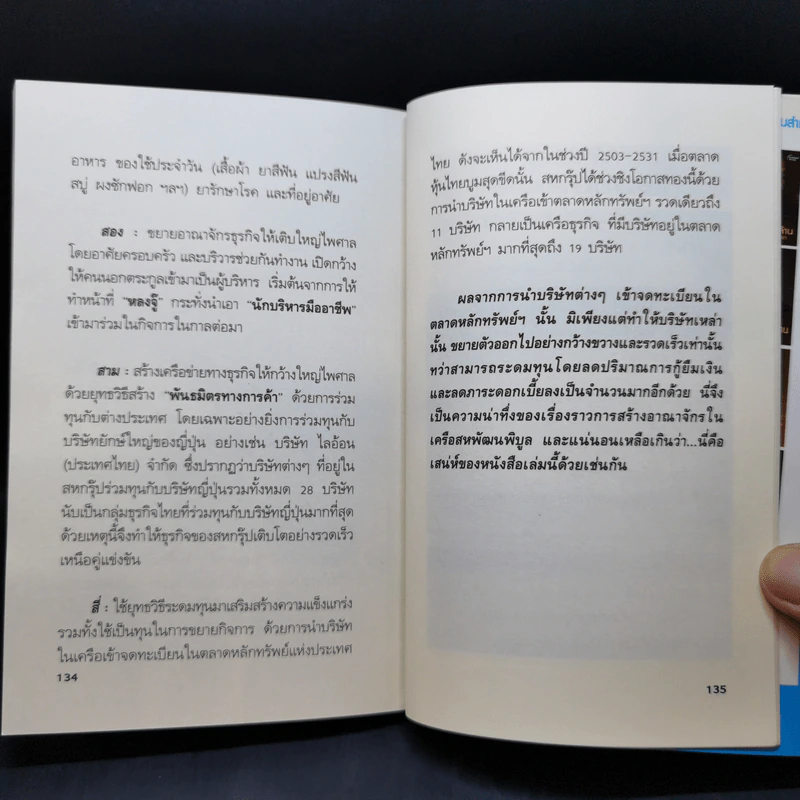 อาหาร ของใช้ประจำวัน (เสื้อผ้า ยาสีฟัน แปรงสีฟัน
สบู่ ผงซักฟอก ฯลฯ) ยารักษาโรค และที่อยู่อาศัย
สอง : ขยายอาณาจักรธุรกิจให้เติบใหญ่ไพศาล
โดยอาศัยครอบครัว และบริวารช่วยกันทำงาน เปิดกว้าง
ให้คนนอกตระกูลเข้ามาเป็นผู้บริหาร เริ่มต้นจากการให้
ทำหน้าที่ "หลงจู๊" กระทั่งนำเอา "นักบริหารมืออาชีพ"
เข้ามาร่วมในกิจการในกาลต่อมา
สาม : สร้างเครือข่ายทางธุรกิจให้กว้างใหญ่ไพศาล
ด้วยยุทธวิธีสร้าง "พันธมิตรทางการค้า" ด้วยการร่วม
ทุนกับต่างประเทศ โดยเฉพาะอย่างยิ่งการร่วมทุนกับ
บริษัทยักษ์ใหญ่ของญี่ปุ่น อย่างเช่น บริษัท ไลอ้อน
(ประเทศไทย) จำกัด ซึ่งปรากฏว่าบริษัทต่างๆ ที่อยู่ใน
สหกรุ๊ปร่วมทุนกับบริษัทญี่ปุ่นรวมทั้งหมด 28 บริษัท
นับเป็นกลุ่มธุรกิจไทยที่ร่วมทุนกับบริษัทญี่ปุ่นมากที่สุด
ด้วยเหตุนี้จึงทำให้ธุรกิจของสหกรุ๊ปเติบโตอย่างรวดเร็ว
เหนือคู่แข่งขัน
สี่ : ใช้ยุทธวิธีระดมทุนมาเสริมสร้างความแข็งแกร่ง
รวมทั้งใช้เป็นทุนในการขยายกิจการ ด้วยการนำบริษัท
ในเครือเข้าจดทะเบียนในตลาดหลักทรัพย์แห่งประเทศ
134
ไทย ดังจะเห็นได้จากในช่วงปี 2503-2531 เมื่อตลาด
หุ้นไทยบูมสุดขีดนั้น สหกรุ๊ปได้ช่วงชิงโอกาสทองนี้ด้วย
การนำบริษัทในเครือเข้าตลาดหลักทรัพย์ฯ รวดเดียวถึง
11 บริษัท กลายเป็นเครือธุรกิจ ที่มีบริษัทอยู่ในตลาด
หลักทรัพย์ฯ มากที่สุดถึง 19 บริษัท
ผลจากการนำบริษัทต่างๆ เข้าจดทะเบียนใน
ตลาดหลักทรัพย์ฯ นั้น มิเพียงแต่ทำให้บริษัทเหล่า
นั้น ขยายตัวออกไปอย่างกว้างขวางและรวดเร็วเท่านั้น
ทว่าสามารถระดมทุนโดยลดปริมาณการกู้ยืมเงิน
และลดภาระดอกเบี้ยลงเป็นจำนวนมากอีกด้วย นี่จึง
เป็นความน่าทึ่งของเรื่องราวการสร้างอาณาจักรใน
เครือสหพัฒนพิบูล และแน่นอนเหลือเกินว่า...นี่คือ
เสน่ห์ของหนังสือเล่มนี้ด้วยเช่นกัน
135